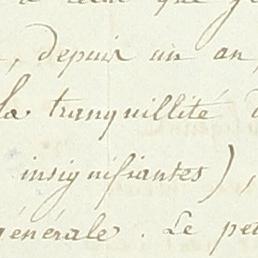 à celui que j
, depuis un an,
la tranquillité d
insignifiantes),
générale. Le pe